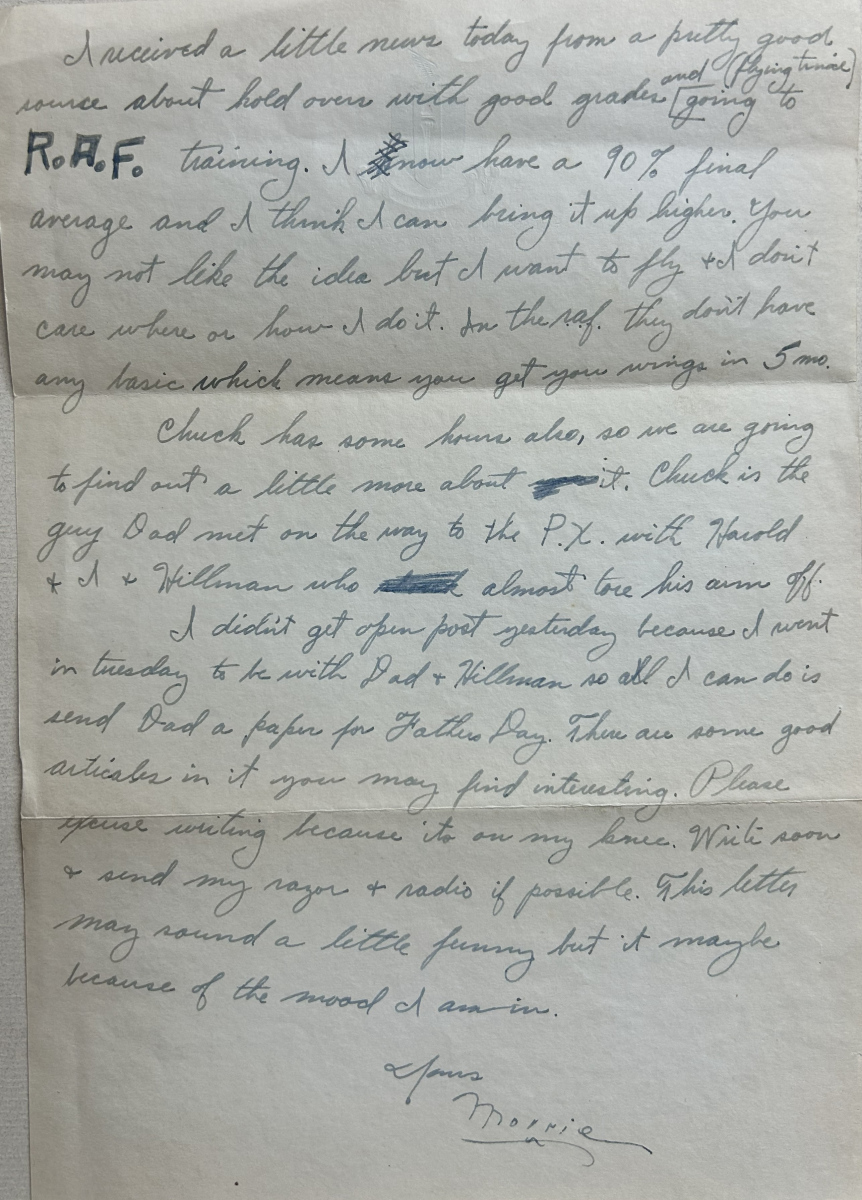 I received a little news today from a pretty good
source about hold overs with good grades and (flying time) going to
R.A.F. training. I now have a 90% final
average and I think I can bring it up higher. You
may not like the idea but I want to fly + I don't
care where or how I do it. In the raf. they don't have
any basic which means you get you wings in 5 mo.
Chuck has some hours also, so we are going
to find out a little more about it. Chuck is the
guy Dad met on the way to the P.X. with Harold
+ I + Hillman who almost tore his arm off.
I didn't get open post yesterday because I went
in tuesday to be with Dad + Hillman so all I can do is
send Dad a paper for Fathers Day. There are some good
articales in it you may find interesting. Please
excuse writing because its on my knee. Write soon
+ send my razor + radio if possible. This letter
may sound a little funny but it maybe
because of the mood I am in.
Yours
Morrie